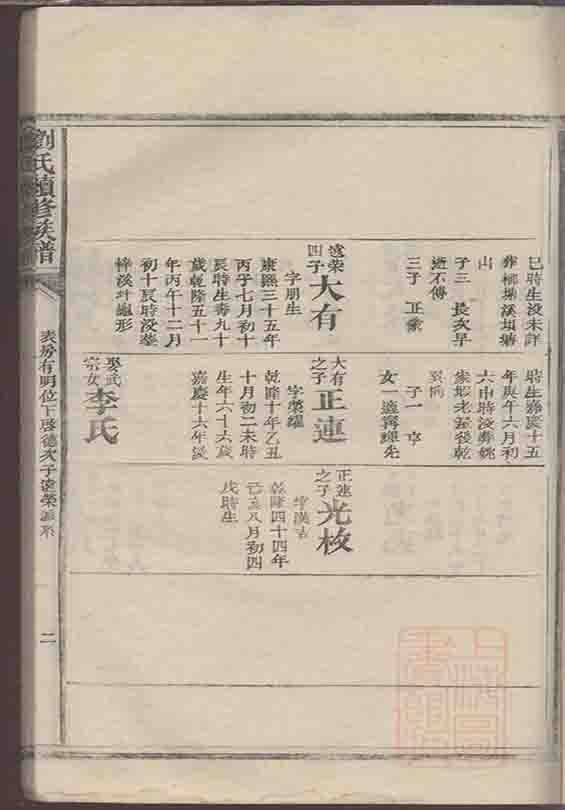 巳時生沒未詳
葬楊塘溪垻塘
山
子三 長次早
逝不傳
三子 正業
遠榮四子大有
字朋生
康熙三十五年
丙子七月初十
辰時生壽九十
歲乾隆五十一
年丙午十二月
初十辰時沒葬
梓溪圤龜形
時生嘉慶十五
年庚午六月初
六申時沒葬姚
家垻老
巽向
子一 亨
女一適寧
大有之子正連
字榮耀
乾隆十年乙丑
十月初二未時
生年六十六歲
嘉慶十六年沒
娶武宗女李氏
正連之子光枚
字漢吉
乾隆四十四年
己亥八月初四
戌時生
劉氏續修族譜
表房有明位下啓德次子遠榮派系
二
上海圖書館